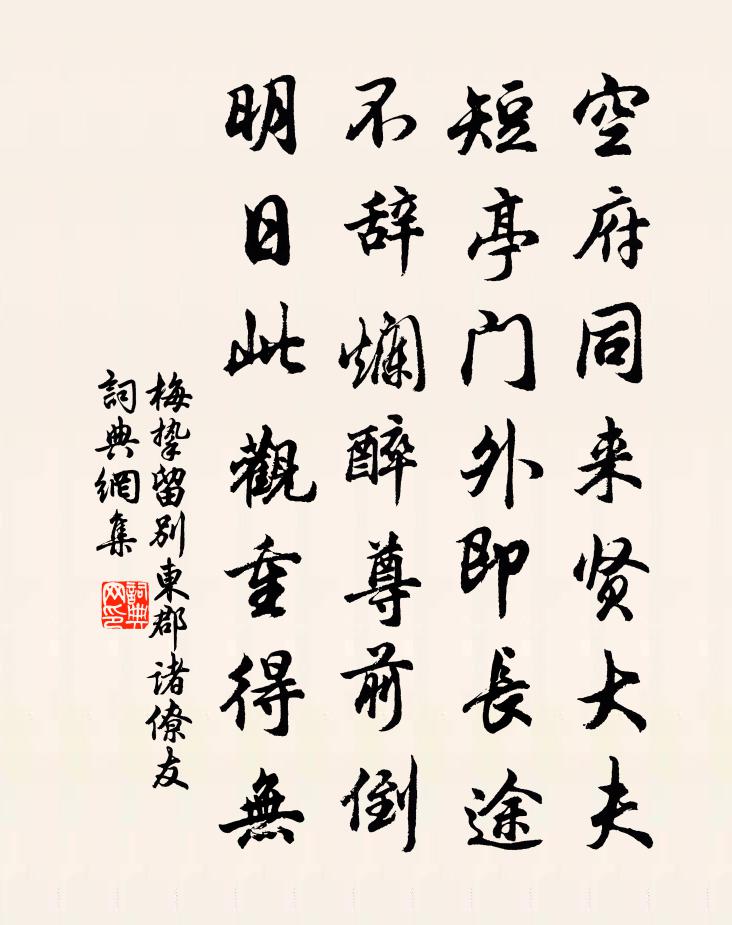 空府同来贤大夫
短亭门外即長途
不辞爛醉尊前倒
明日此觀重得無
梅挚留别東郡诸僚友
詞典網集
詞典网印